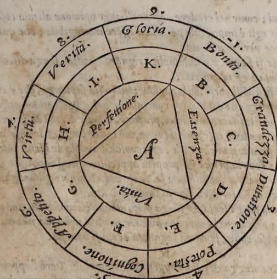 9. Gloria.
1. Bontà.
Grandezza
3. Duratione.
4. Potestà
5. Cognitione.
6. Appetito.
7. Virtù.
8. Verità.
K.
B.
C.
D.
E.
F.
G.
H.
I.
Perfettione.
Essenza.
Vnità.
A